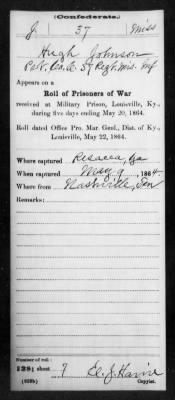 (Confederate.)
J 37 Miss
Hugh Johnson
Pvt. Co. E. 37 Regt. Mis. Inf
Appears on a
Roll of Prisoners of War
received at Military Prison, Louisville, Ky.,
during five days ending May 20, 1864.
Roll dated Office Pro. Mar. Genl., Dist. of Ky.,
Louisville, May 22, 1864.
Where captured Resacca, Ga
When captured May 9, 1864.
Where from Nashville, Ten
Remarks:
Number of roll:
sheet 7
Copyist.